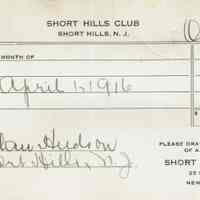 SHORT HILLS CLUB
SHORT HILLS, N. J.
MONTH OF
April 1, 1916
Hudson
Short Hills, N.J.
PLEASE DRA
OF A
SHORT
25
NEW